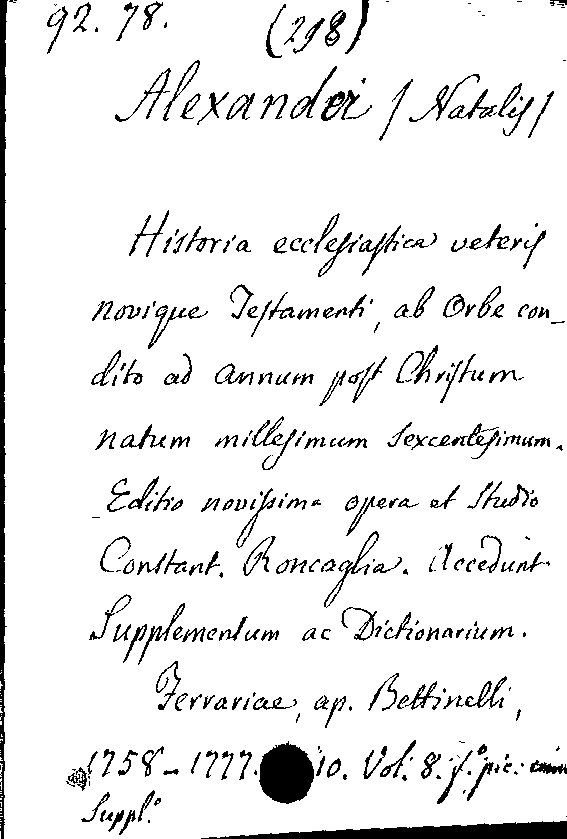 92. 78. (298)
Alexandri / Natalis /
Historia ecclesiastica veteris
novique Testamenti, ab Orbe con_
dito ad annum post Christum
natum millesimum sexcentesimum.
Editio novissima opera et Studio
Constant. Roncaglia. Accedunt
Supplementum ac Dictionarium.
Ferrariae, ap. Bettinelli,
1758 - 1777. 10. Vol: 8. f.º pic:
Suppl.º